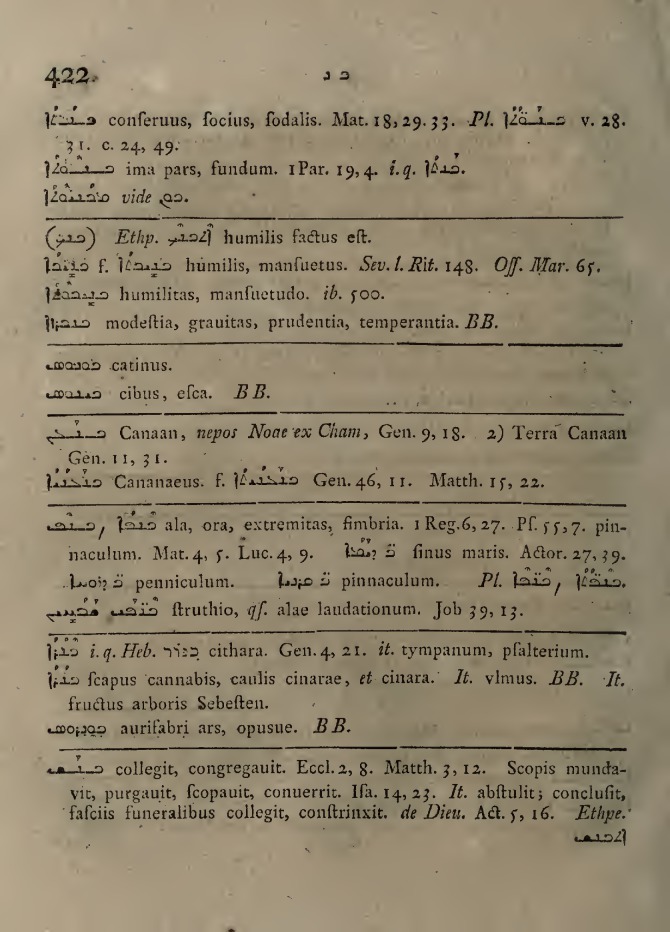 422. ܟ ܢ
ܟܢܬܐ conſeruus, ſocius, ſodalis. Mat. 18, 29. 33. Pl. ܟܢܘܬܐ v. 28.
31. c. 24, 49.
ima pars, fundum. 1 Par. 19, 4. i. q.
vide
Ethp. humilis factus eſt.
f. humilis, manſuetus. Sev. l. Rit. 148. Off. Mar. 65.
humilitas, manſuetudo. ib. 500.
modeſtia, grauitas, prudentia, temperantia. BB.
catinus.
cibus, eſca. BB.
ܟܢܥܢ Canaan, nepos Noae ex Cham, Gen. 9, 18. 2) Terra Canaan
Gen. 11, 31.
ܟܢܥܢܝܐ Cananaeus. f. ܟܢܥܢܝܬܐ Gen. 46, 11. Matth. 15, 22.
ܟܢܦ, ܟܢܦܐ ala, ora, extremitas, fimbria. 1 Reg. 6, 27. Pſ. 55, 7. pin-
naculum. Mat. 4, 5. Luc. 4, 9. ܟ ܕܝܡܐ ſinus maris. Actor. 27, 39.
penniculum. pinnaculum. Pl. ܟܢܦܐ, ܟܢܦܬܐ.
ſtruthio, qſ. alae laudationum. Job 39, 13.
ܟܢܪܐ i. q. Heb. כנור cithara. Gen. 4, 21. it. tympanum, pſalterium.
ܟܢܪܐ ſcapus cannabis, caulis cinarae, et cinara. It. vlmus. BB. It.
fructus arboris Sebeſten.
aurifabri ars, opusue. BB.
ܟܢܫ collegit, congregauit. Eccl. 2, 8. Matth. 3, 12. Scopis munda-
vit, purgauit, ſcopauit, conuerrit. Iſa. 14, 23. It. abſtulit; concluſit,
faſciis funeralibus collegit, conſtrinxit. de Dieu. Act. 5, 16. Ethpe.
ܐܬܟܢܫ